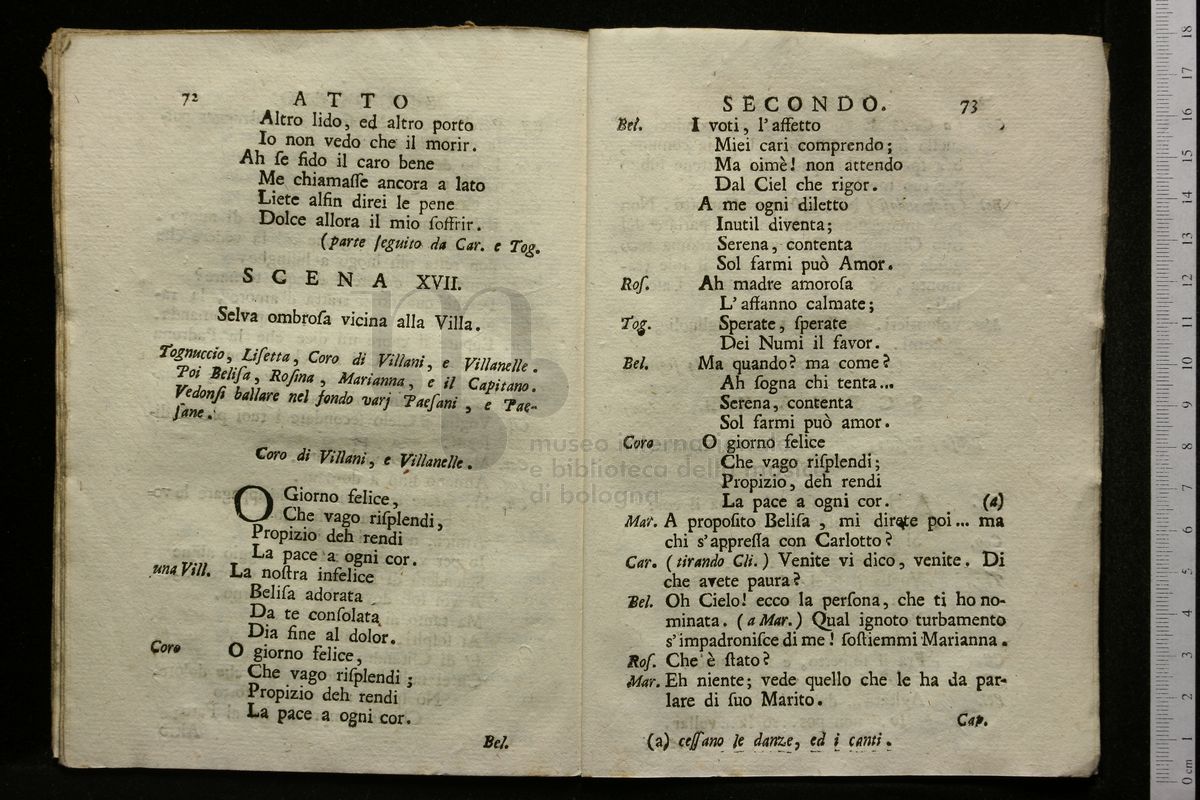 72
A T T O
Altro lido, ed altro porto
Io non vedo che il morir.
Ah ſe fido il caro bene
Me chiamaſſe ancora a lato
Liete alfin direi le pene
Dolce allora il mio ſoffrir.
(parte ſeguito da Car. e Tog.
S C E N A XVII.
Selva ombroſa vicina alla Villa.
Tognuccio, Liſetta, Coro di Villani, e Villanelle.
Poi Beliſa, Roſina, Marianna, e il Capitano.
Vedonſi ballare nel fondo varj Paeſani, e Pae-
ſane.
Coro di Villani, e Villanelle.
O Giorno felice,
Che vago riſplendi,
Propizio deh rendi
La pace a ogni cor.
una Vill. La noſtra infelice
Beliſa adorata
Da te conſolata
Dia fine al dolor.
Coro O giorno felice,
Che vago riſplendi;
Propizio deh rendi
La pace a ogni cor.
Bel.
SECONDO. 73
Bel. I voti, l'affetto
Miei cari comprendo;
Ma oimè! non attendo
Dal Ciel che rigor.
A me ogni diletto
Inutil diventa;
Serena, contenta
Sol farmi può Amor.
Roſ. Ah madre amoroſa
L'affanno calmate;
Tog. Sperate, ſperate
Dei Numi il favor.
Bel. Ma quando? ma come?
Ah ſogna chi tenta...
Serena, contenta
Sol farmi può amor.
Coro O giorno felice
Che vago riſplendi;
Propizio, deh rendi
La pace a ogni cor. (a)
Mar. A propoſito Beliſa, mi direte poi... ma
chi s'appreſſa con Carlotto?
Car. (tirando Cli.) Venite vi dico, venite. Di
che avete paura?
Bel. Oh Cielo! ecco la perſona, che ti ho no-
minata. (a Mar.) Qual ignoto turbamento
s'impadroniſce di me! ſoſtiemmi Marianna.
Roſ. Che è ſtato?
Mar. Eh niente; vede quello che le ha da par-
lare di ſuo Marito.
Cap.
(a) ceſſano le danze, ed i canti.
museo interna
e biblioteca della
di bologna